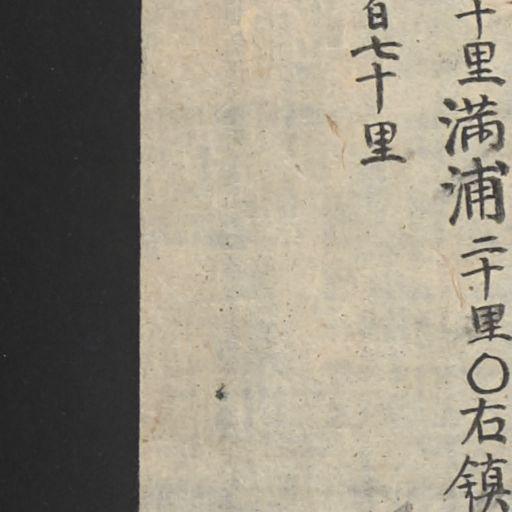 十里滿浦二十里〇右鎮
百七十里